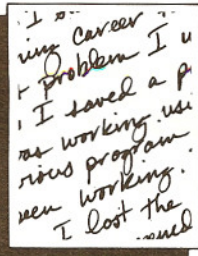 I
ing career
problem I
I saved a p
as working. usi
rious program
een working.
I lost the